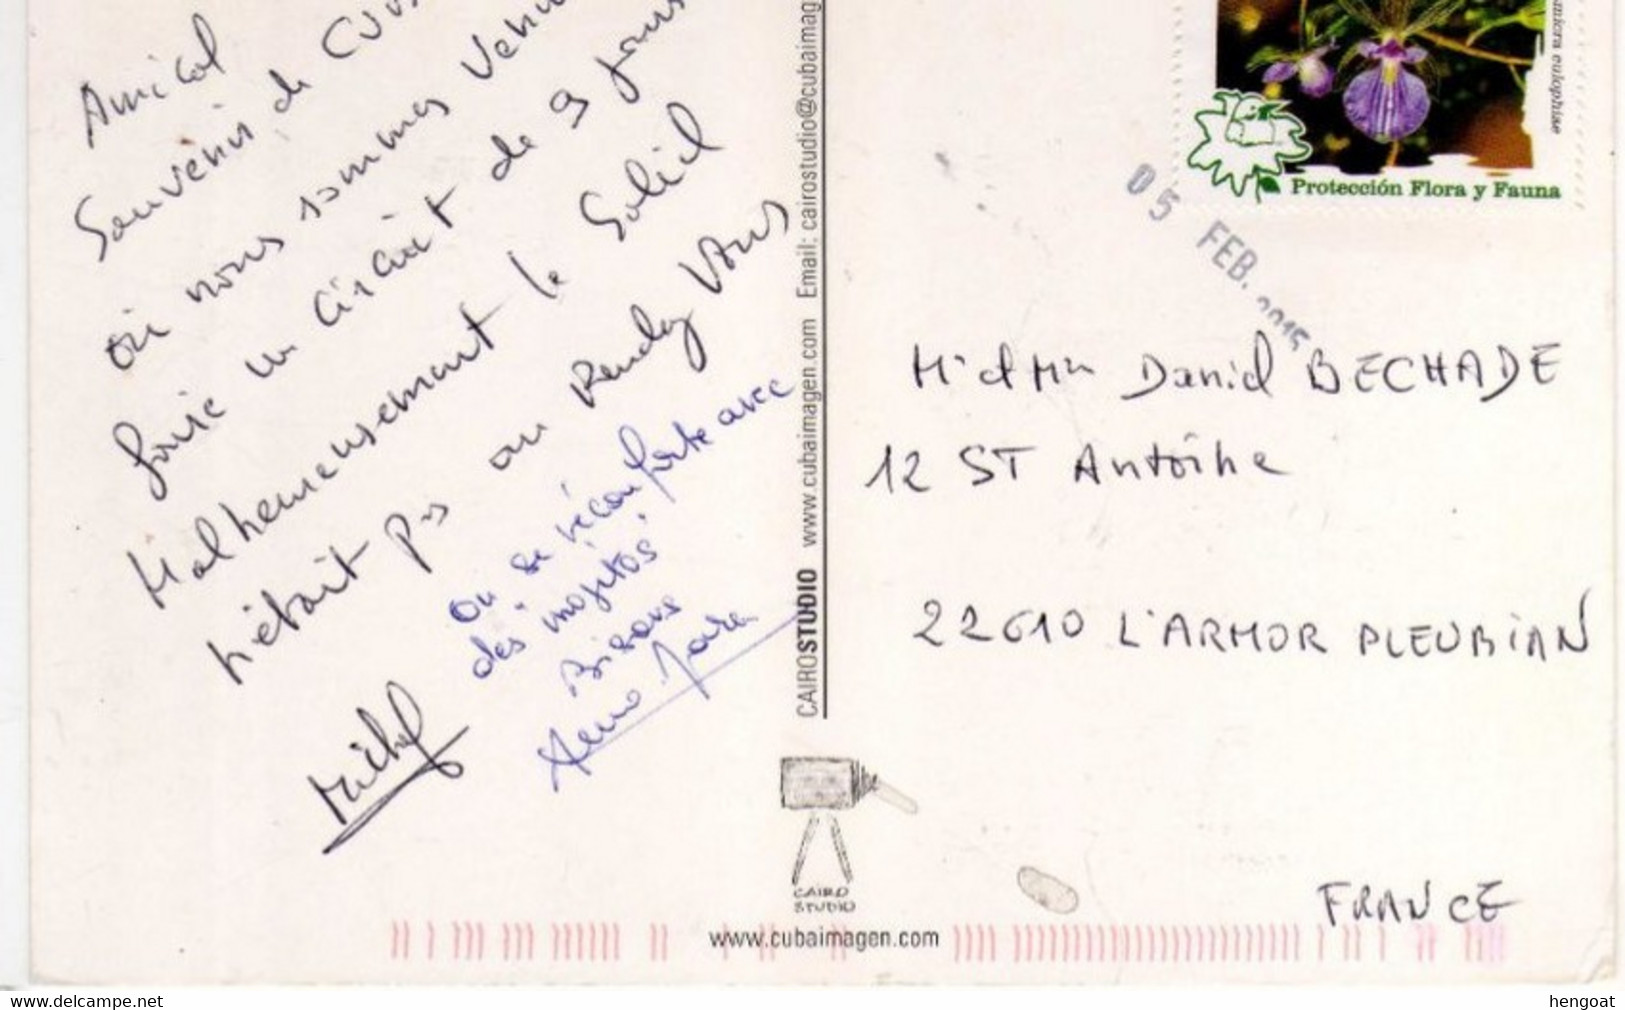 Amical
Souvenir de
où nous sommes venu
faire un circuit de 9 jours
Malheureusement le Soleil
n'était pas au Rendez Vous
On se réconforte avec
des mojitos
Bisous
Michel
CAIROSTUDIO www.cubaimagen.com Email: cairostudio@cubaimag
Protección Flora y Fauna
05 FEB. 2015
Mr et Mm Daniel BECHADE
12 ST Antoine
22610 L'ARMOR PLEUBIAN
FRANCE
CAIRO
STUDIO
www.cubaimagen.com
www.delcampe.net
hengoat